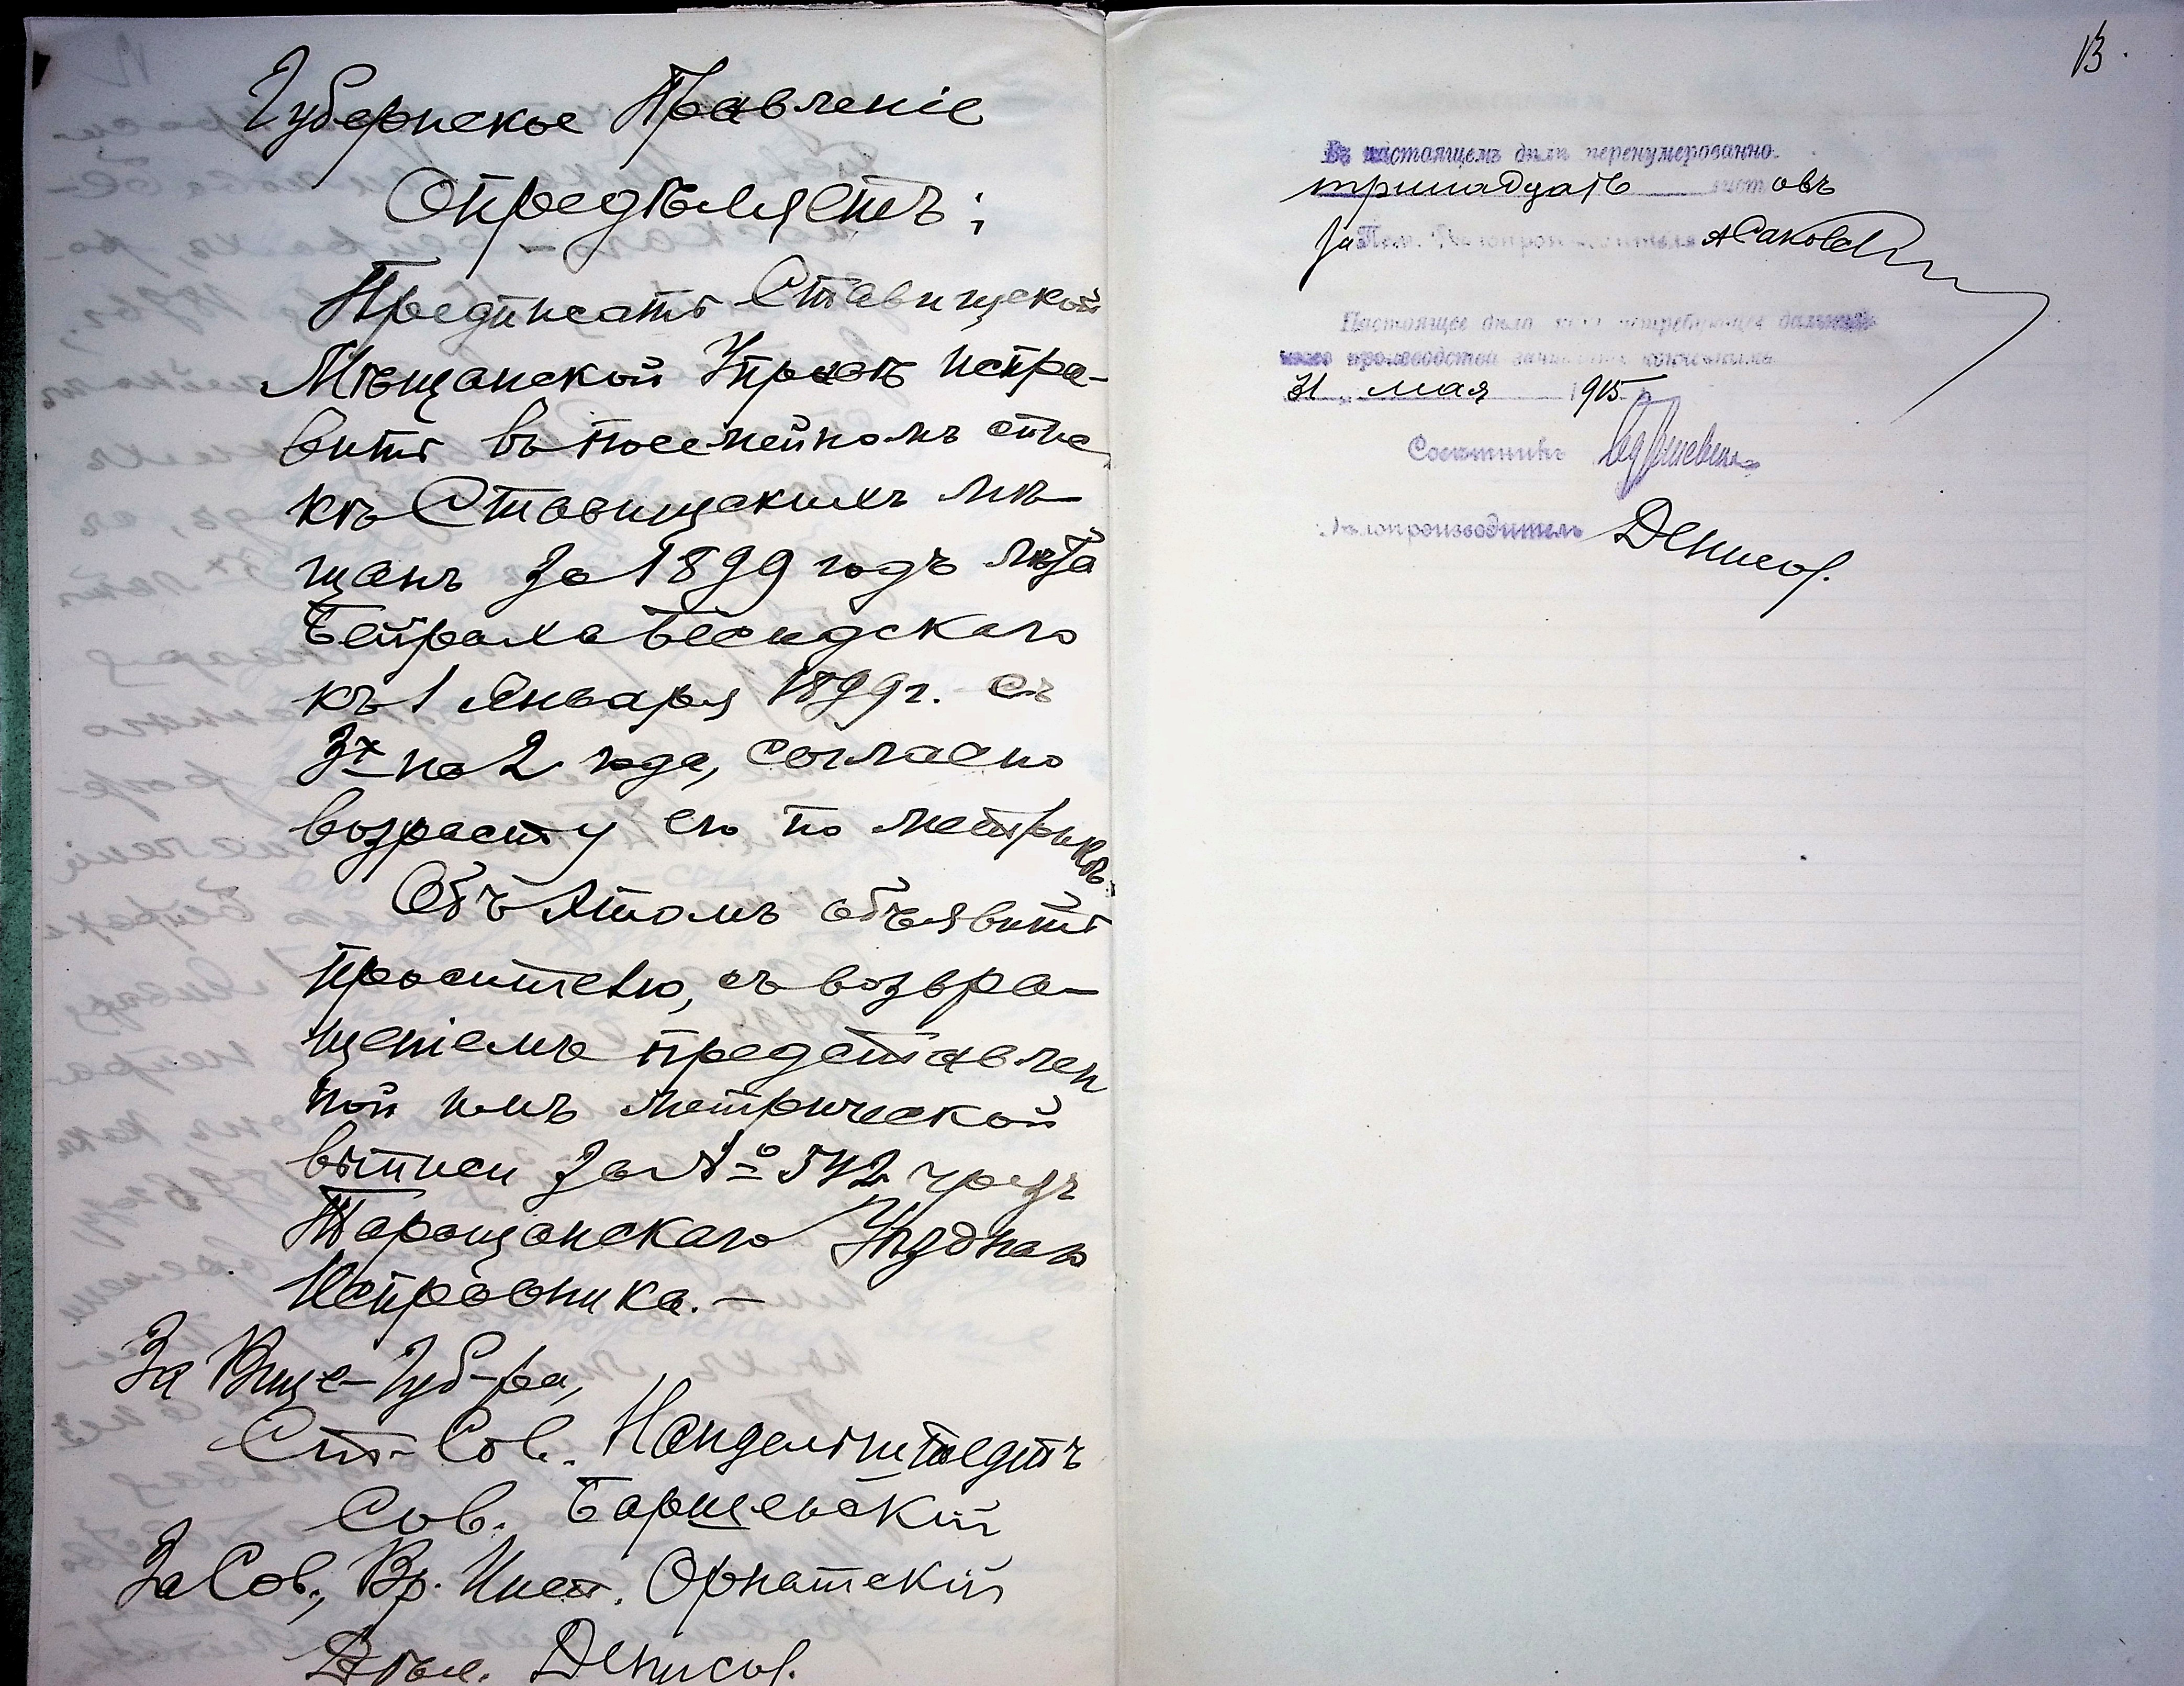 Губернское Правленіе
Опредѣляетъ:
Предписать Ставищской
Мѣщанской Управѣ испра-
вить въ посемейномъ спис
кѣ Ставищскихъ мѣ-
щанъ за 1899 годъ лѣта
Бейраха Бесидскаго
къ 1 Января 1899 г. съ
3х на 2 года, согласно
возрасту его по метрикѣ.
Объ этомъ объявить
просителю, съ возвра-
щеніемъ представлен
ной имъ метрической
выписи за № 542 чрезъ
Таращанскаго Уѣзднаго
Исправника.—
За Вице-Губ-ра,
Ст. Сов.
Сов. Барщевскій
За Сов., Вр. Инсп. Орнатскій
Дѣл. Денисов.
13.
Въ настоящемъ дѣлѣ перенумерованно
тринадцать листовъ
За Пом. Дѣлопроизводителя
Настоящее дѣло не требующее дальнѣй-
шаго производства
31 мая 1915
Совѣтникъ
Дѣлопроизводитель Денисов.